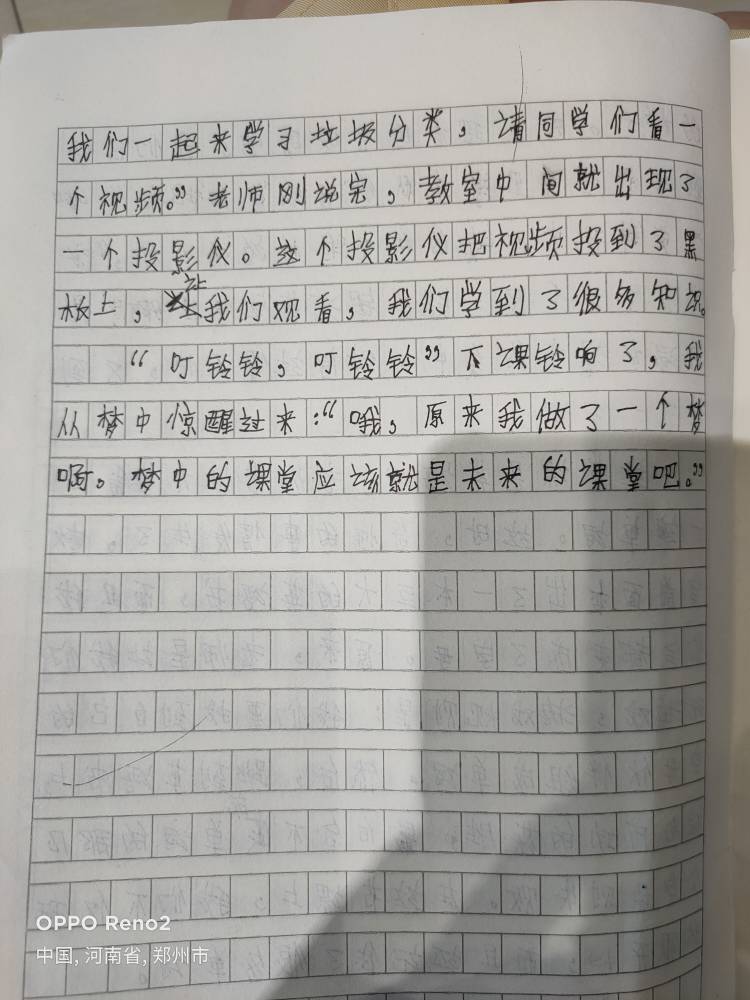 我们一起来学习垃圾分类，请同学们看一
个视频。”老师刚说完，教室中间就出现了
一个投影仪。这个投影仪把视频投到了黑
板上，让我们观看，我们学到了很多知识。
“叮铃铃，叮铃铃”下课铃响了，我
从梦中惊醒过来：“哦，原来我做了一个梦
啊。梦中的课堂应该就是未来的课堂吧。”
OPPO Reno2
中国, 河南省, 郑州市